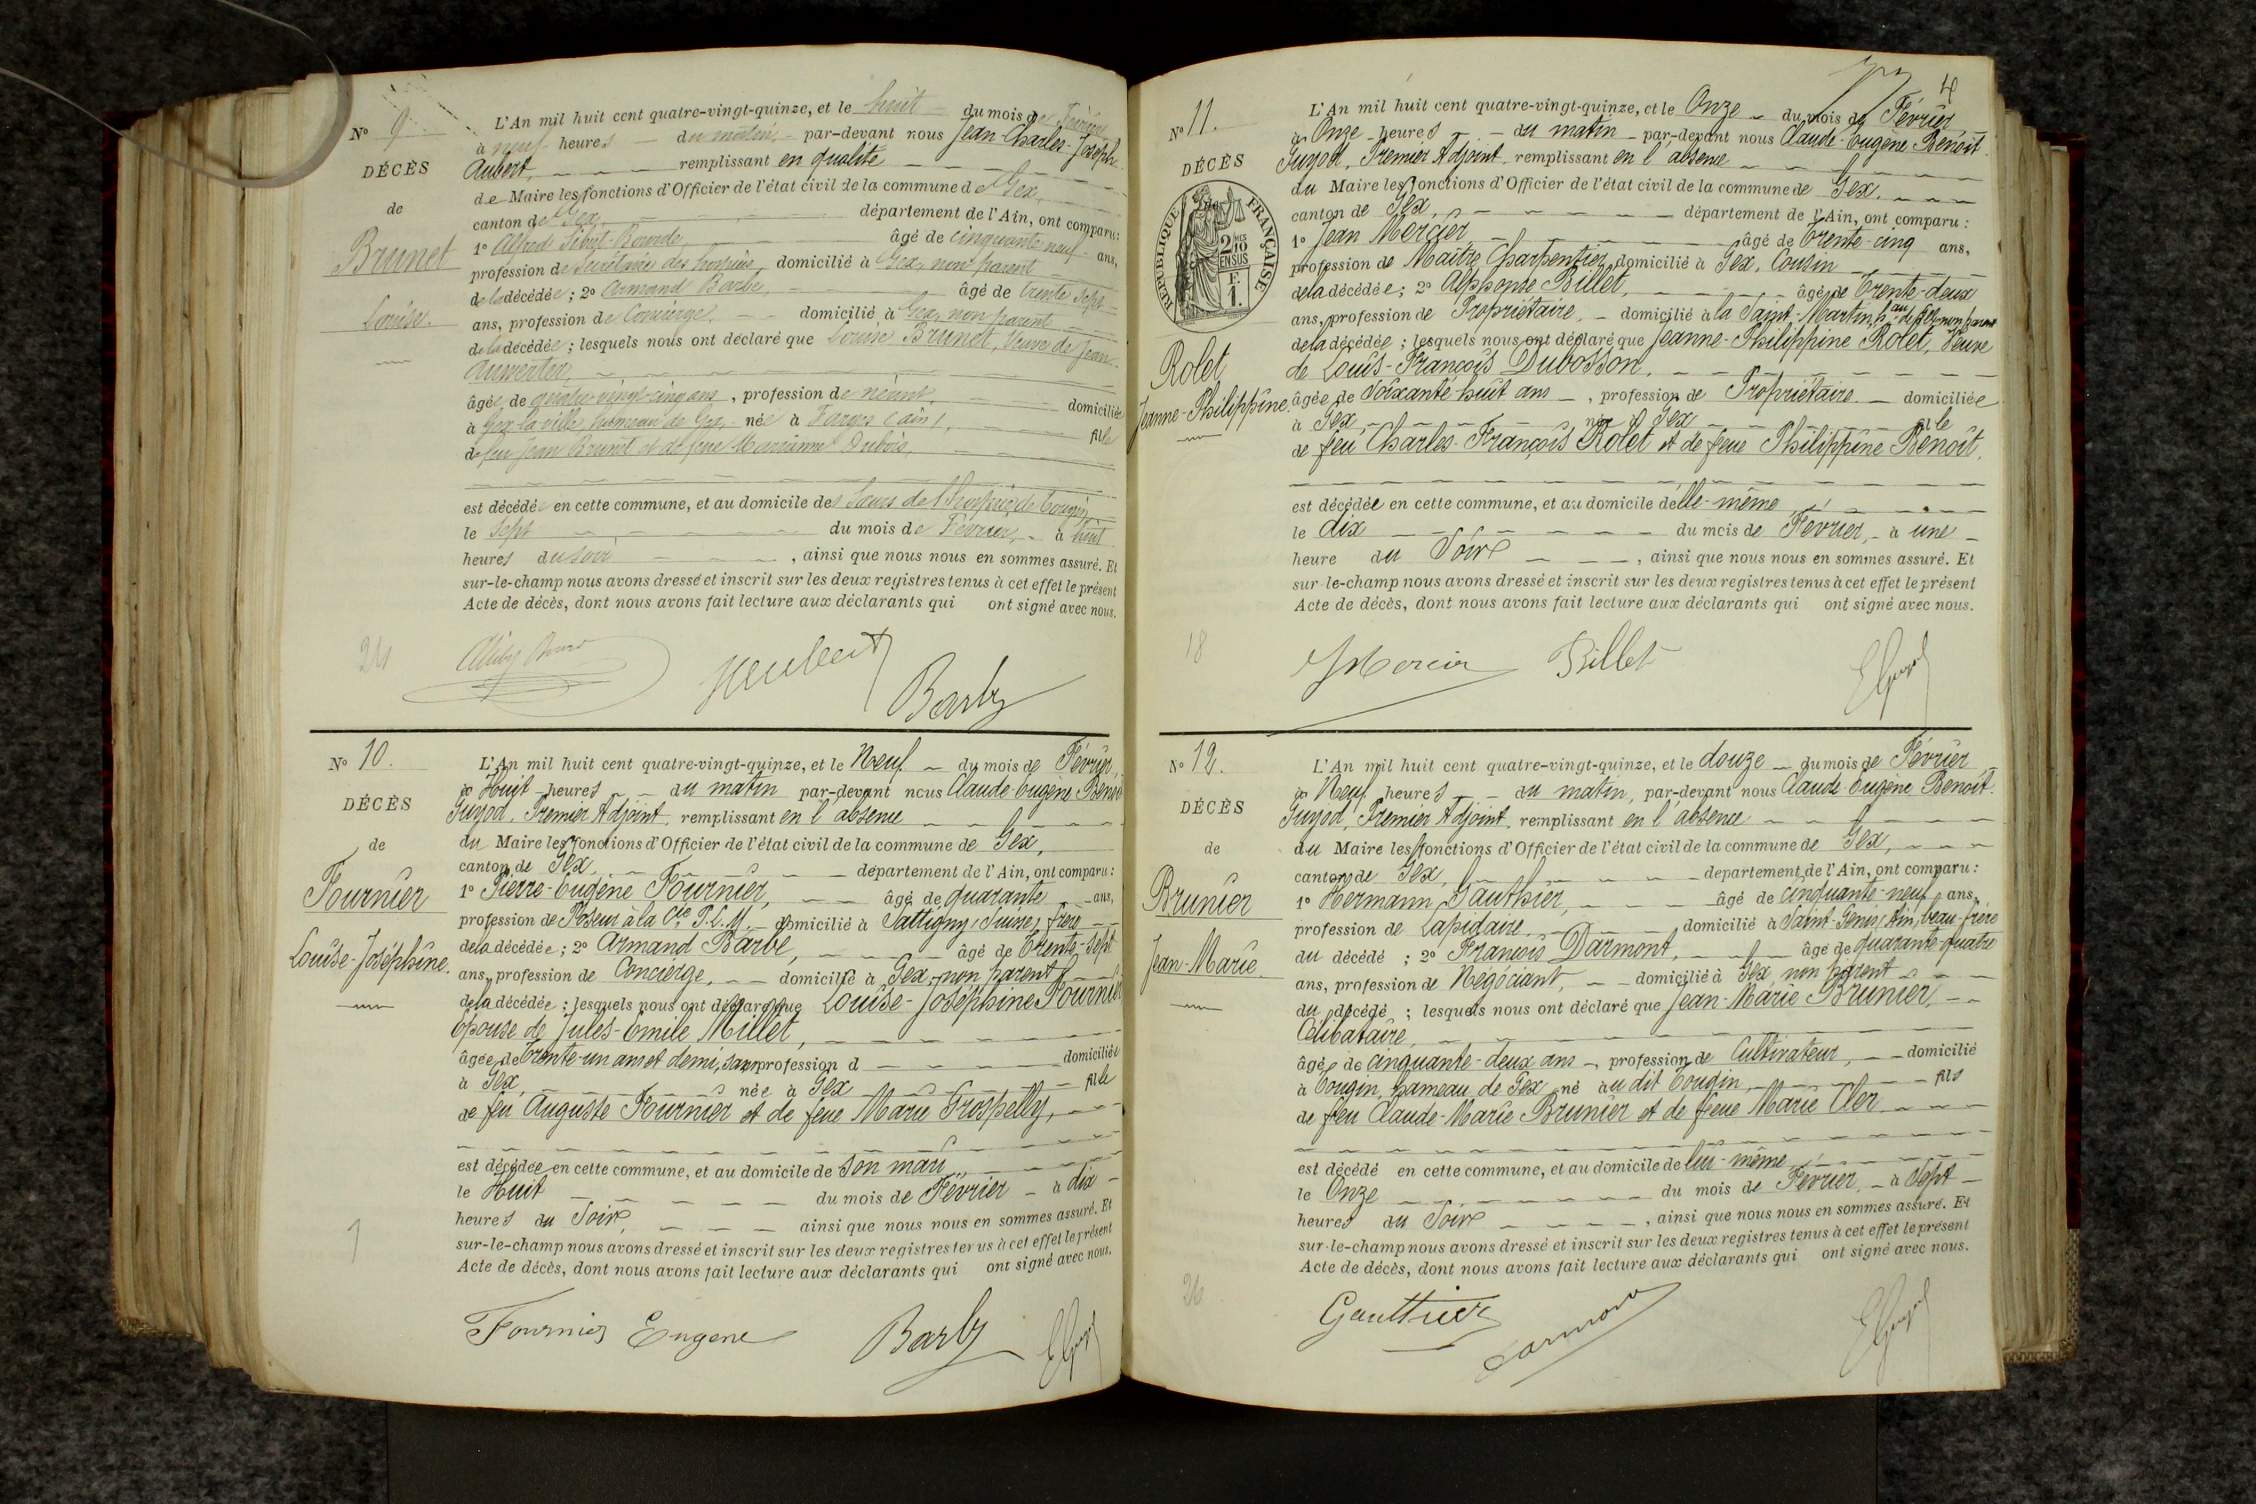 N° 9
DÉCÈS
de
Brunet
Louise.
L'An mil huit cent quatre-vingt-quinze, et le huit du mois de Février
à neuf heures du matin par-devant nous Jean-Charles-Joseph
Aubert, remplissant en qualité
de Maire les fonctions d'Officier de l'état civil de la commune de Gex,
canton de Gex, département de l'Ain, ont comparu:
1° Alfred âgé de cinquante neuf ans,
profession de Secrétaire des hospices domicilié à Gex, non parent
de la décédée; 2° Armand Barbe, âgé de trente sept
ans, profession de Concierge, domicilié à Gex, non parent
de la décédée; lesquels nous ont déclaré que Louise Brunet, Veuve de Jean
âgée de quatre vingt-cinq ans, profession de néant, domiciliée
à Gex-la-ville, hameau de Gex, née à Farges (Ain), fille
de feu Jean Brunet et de feue Marianne Dubois,
est décédée en cette commune, et au domicile des Sœurs de l'hospice de Tougin
le Sept du mois de Février, à huit
heures du soir, ainsi que nous nous en sommes assuré. Et
sur-le-champ nous avons dressé et inscrit sur les deux registres tenus à cet effet le présent
Acte de décès, dont nous avons fait lecture aux déclarants qui ont signé avec nous.
Barbe
N° 10.
DÉCÈS
de
Fournier
Louise-Joséphine.
L'An mil huit cent quatre-vingt-quinze, et le Neuf du mois de Février,
à Huit heures du matin par-devant nous Claude-Eugène-Benoit
Guyod, Premier Adjoint, remplissant en l'absence
du Maire les fonctions d'Officier de l'état civil de la commune de Gex,
canton de Gex, département de l'Ain, ont comparu:
1° Pierre-Eugène Fournier, âgé de quarante ans,
profession de Poseur à la Cie P.L.M. domicilié à Sattigny (Suisse), frère
de la décédée; 2° Armand Barbe, âgé de Trente-sept
ans, profession de Concierge, domicilié à Gex, non parent
de la décédée; lesquels nous ont déclaré que Louise-Joséphine Fournier
Epouse de Jules-Emile Millet,
âgée de Trente-un ans et demi, sans profession d domiciliée
à Gex, née à Gex fille
de feu Auguste Fournier et de feue Marie Grospelly,
est décédée en cette commune, et au domicile de son mari,
le Huit du mois de Février à dix
heures du Soir, ainsi que nous nous en sommes assuré. Et
sur-le-champ nous avons dressé et inscrit sur les deux registres tenus à cet effet le présent
Acte de décès, dont nous avons fait lecture aux déclarants qui ont signé avec nous.
Fournier Eugene Barbe
4
N° 11.
DÉCÈS
RÉPUBLIQUE FRANÇAISE
2/10 EN SUS
F. 1.
Rolet
Jeanne-Philippine.
L'An mil huit cent quatre-vingt-quinze, et le Onze du mois de Février
à Onze heures du matin par-devant nous Claude-Eugène Benoît
Guyod, Premier Adjoint, remplissant en l'absence
du Maire les fonctions d'Officier de l'état civil de la commune de Gex.
canton de Gex, département de l'Ain, ont comparu:
1° Jean Mercier âgé de Trente-cinq ans,
profession de Maître Charpentier domicilié à Gex, Cousin
de la décédée; 2° Alphonse Billet, âgé de Trente-deux
ans, profession de Propriétaire, domicilié à la Saint-Martin, hau de Gex, non parent
de la décédée; lesquels nous ont déclaré que Jeanne-Philippine Rolet, Veuve
de Louis-François Dubosson,
âgée de Soixante huit ans, profession de Propriétaire domiciliée
à Gex, née à Gex fille
de feu Charles-François Rolet et de feue Philippine Benoît,
est décédée en cette commune, et au domicile d'elle-même,
le dix du mois de Février, à une
heure du Soir, ainsi que nous nous en sommes assuré. Et
sur-le-champ nous avons dressé et inscrit sur les deux registres tenus à cet effet le présent
Acte de décès, dont nous avons fait lecture aux déclarants qui ont signé avec nous.
18
JMercier Billet
N° 12.
DÉCÈS
de
Brunier
Jean-Marie.
L'An mil huit cent quatre-vingt-quinze, et le douze du mois de Février
à Neuf heures du matin, par-devant nous Claude-Eugène Benoît
Guyod, Premier Adjoint, remplissant en l'absence
du Maire les fonctions d'Officier de l'état civil de la commune de Gex,
canton de Gex, département de l'Ain, ont comparu:
1° Hermann Gauthier, âgé de cinquante-neuf ans,
profession de Lapidaire, domicilié à Saint-Genis (Ain), beau-frère
du décédé; 2° François Darmont, âgé de quarante-quatre
ans, profession de Négociant, domicilié à Gex, non parent
du décédé; lesquels nous ont déclaré que Jean-Marie Brunier,
Célibataire,
âgé de cinquante-deux ans, profession de Cultivateur, domicilié
à Tougin, hameau de Gex né au dit Tougin, fils
de feu Claude-Marie Brunier et de feue Marie Cler
est décédé en cette commune, et au domicile de lui-même,
le Onze du mois de Février, à Sept
heures du Soir, ainsi que nous nous en sommes assuré. Et
sur-le-champ nous avons dressé et inscrit sur les deux registres tenus à cet effet le présent
Acte de décès, dont nous avons fait lecture aux déclarants qui ont signé avec nous.
Gauthier Darmont